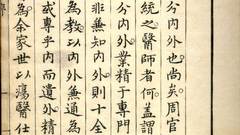 分內外也尚矣周官
統之醫師者何蓋謂
分內外業精于專門
非兼知內外則十全
為教以內外兼通為
或專乎內而遺外精
為余家世以瘍醫仕